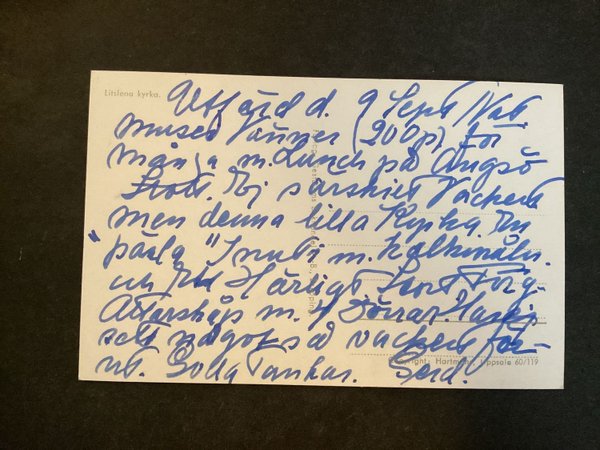 Litslena kyrka.
Utfärd d. 9 Sept Nat
musei Vänner (200p) för
många m. Lunch på Ängsö
Slott. Ej särskilt Vackert
men denna lilla Kyrka. En
"pärla" Inuti m. kalkmåln.
och Ett Härligt Stort Färg-
Altarskåp m. 4 Dörrar. Har ej
sett något så vackert för-
ut. Goda Tankar.
Copyright, Hartmans, Uppsala 60/119